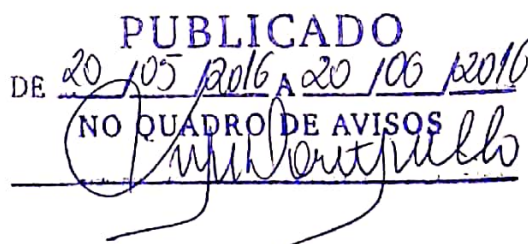 PUBLICADO
DE 20/05/2016 A 20/06/2016
NO QUADRO DE AVISOS